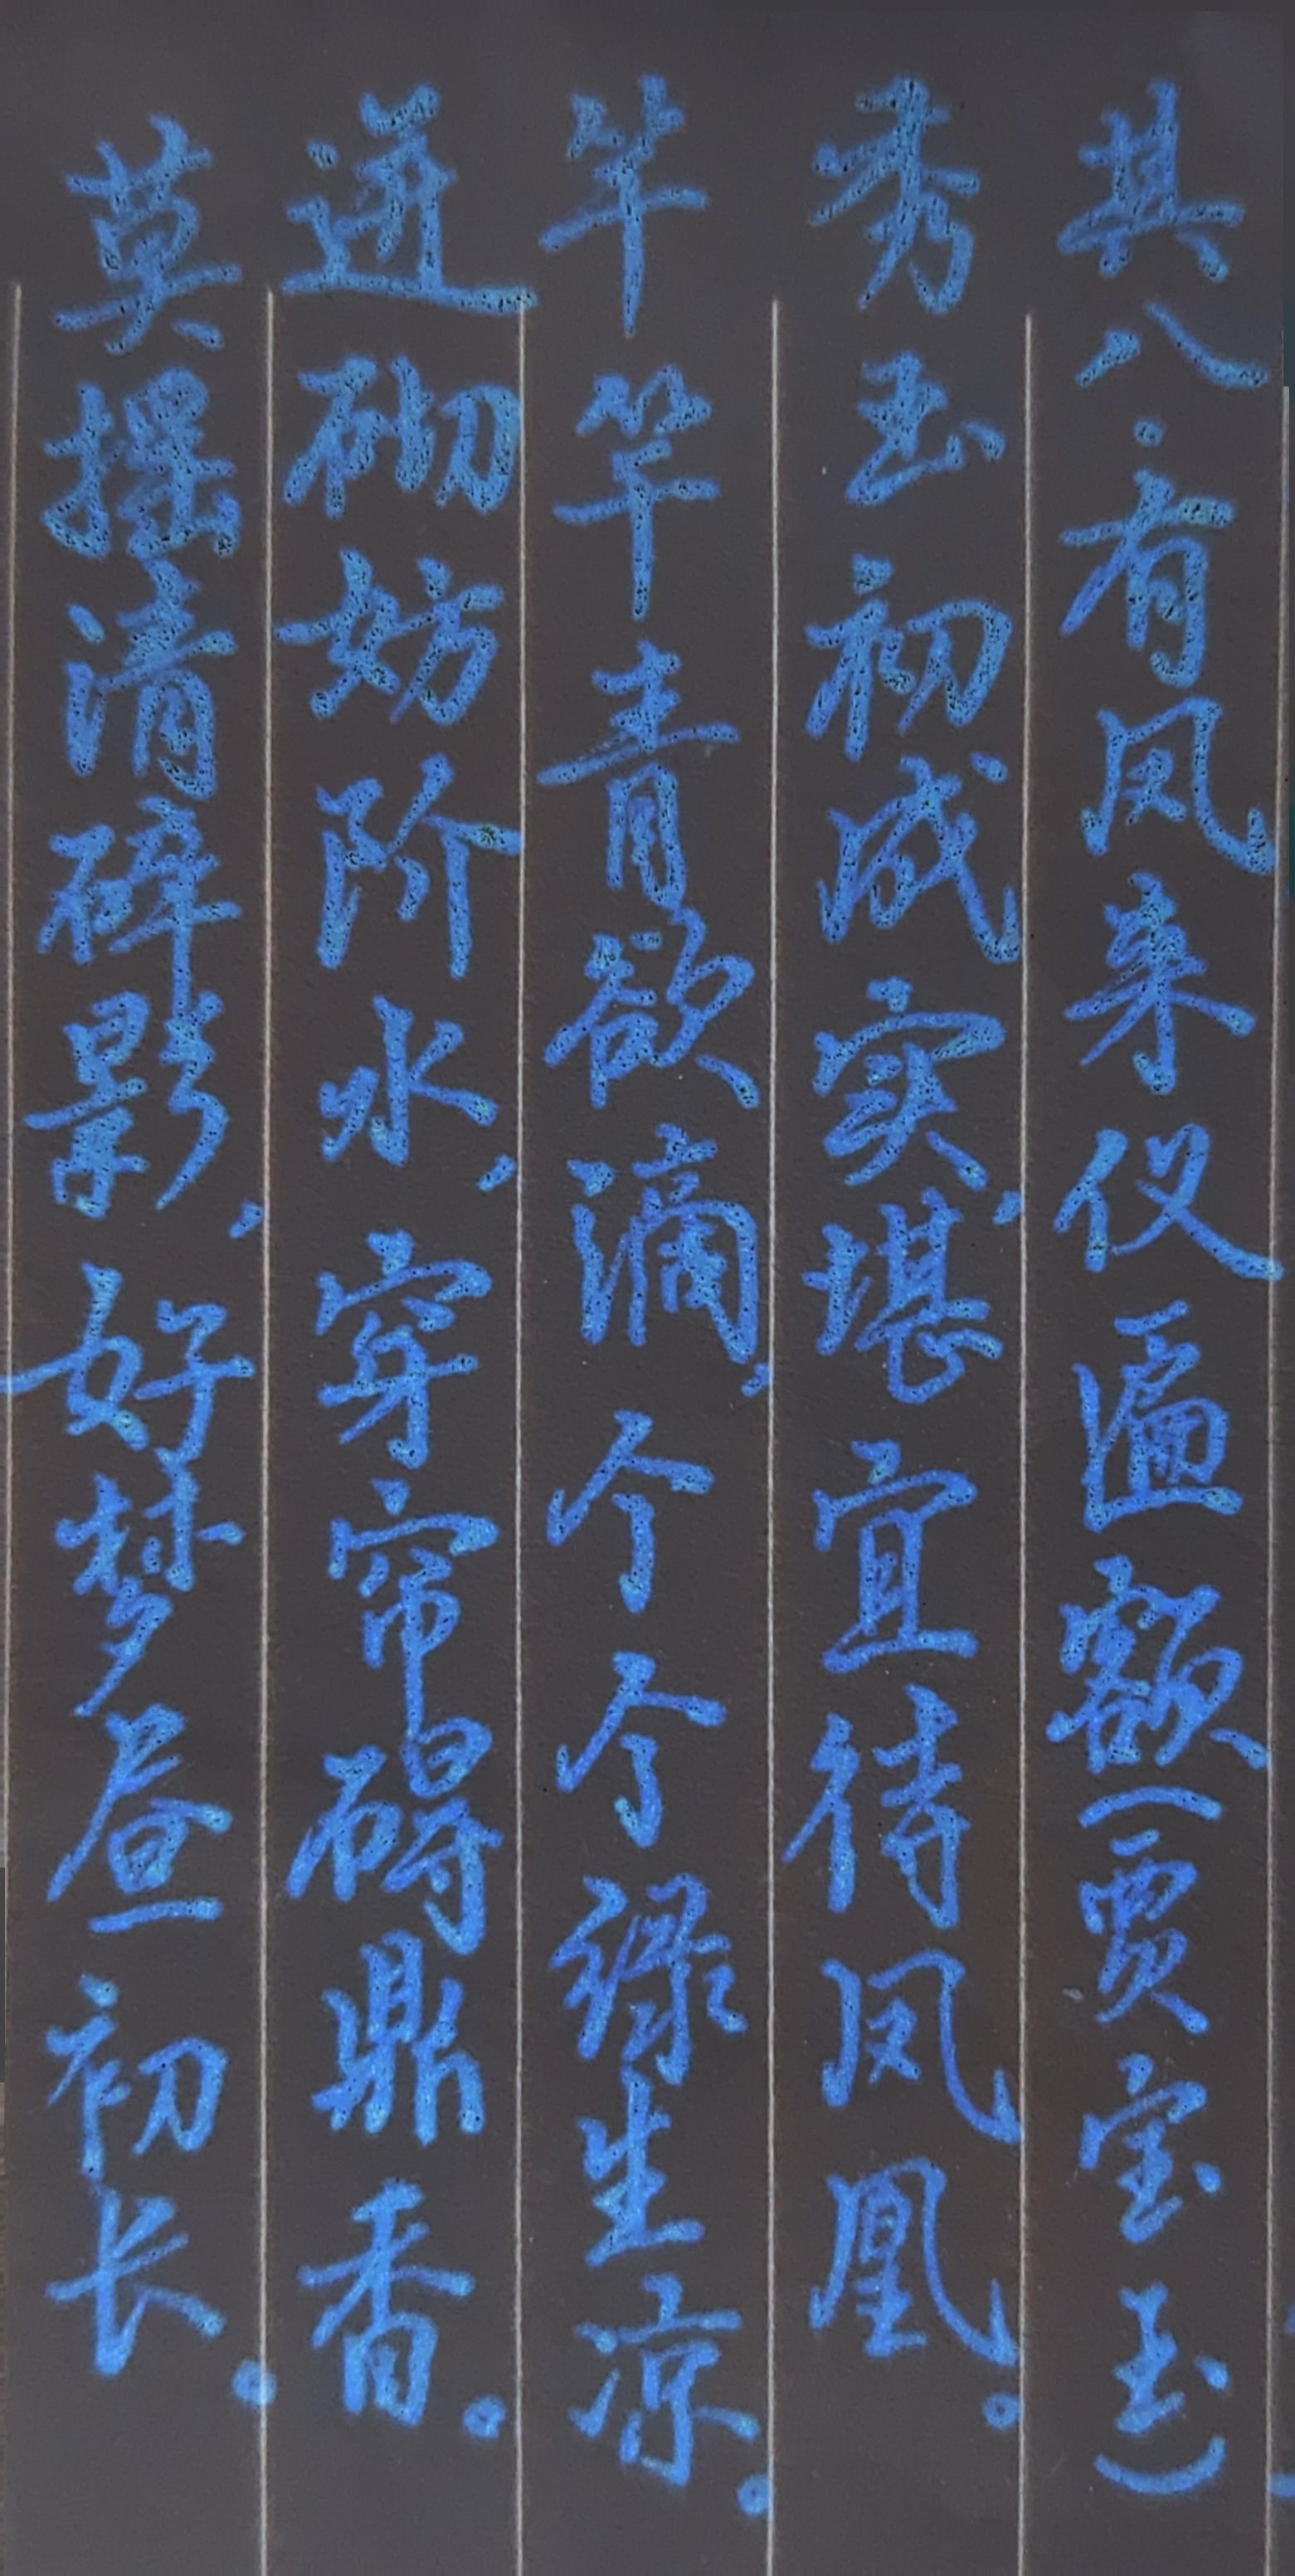 其八·有凤来仪︵匾额︶︵贾宝玉︶
秀玉初成实，堪宜待凤凰。
竿竿青欲滴，个个绿生凉。
迸砌妨阶水，穿帘碍鼎香。
莫摇清碎影，好梦昼初长。